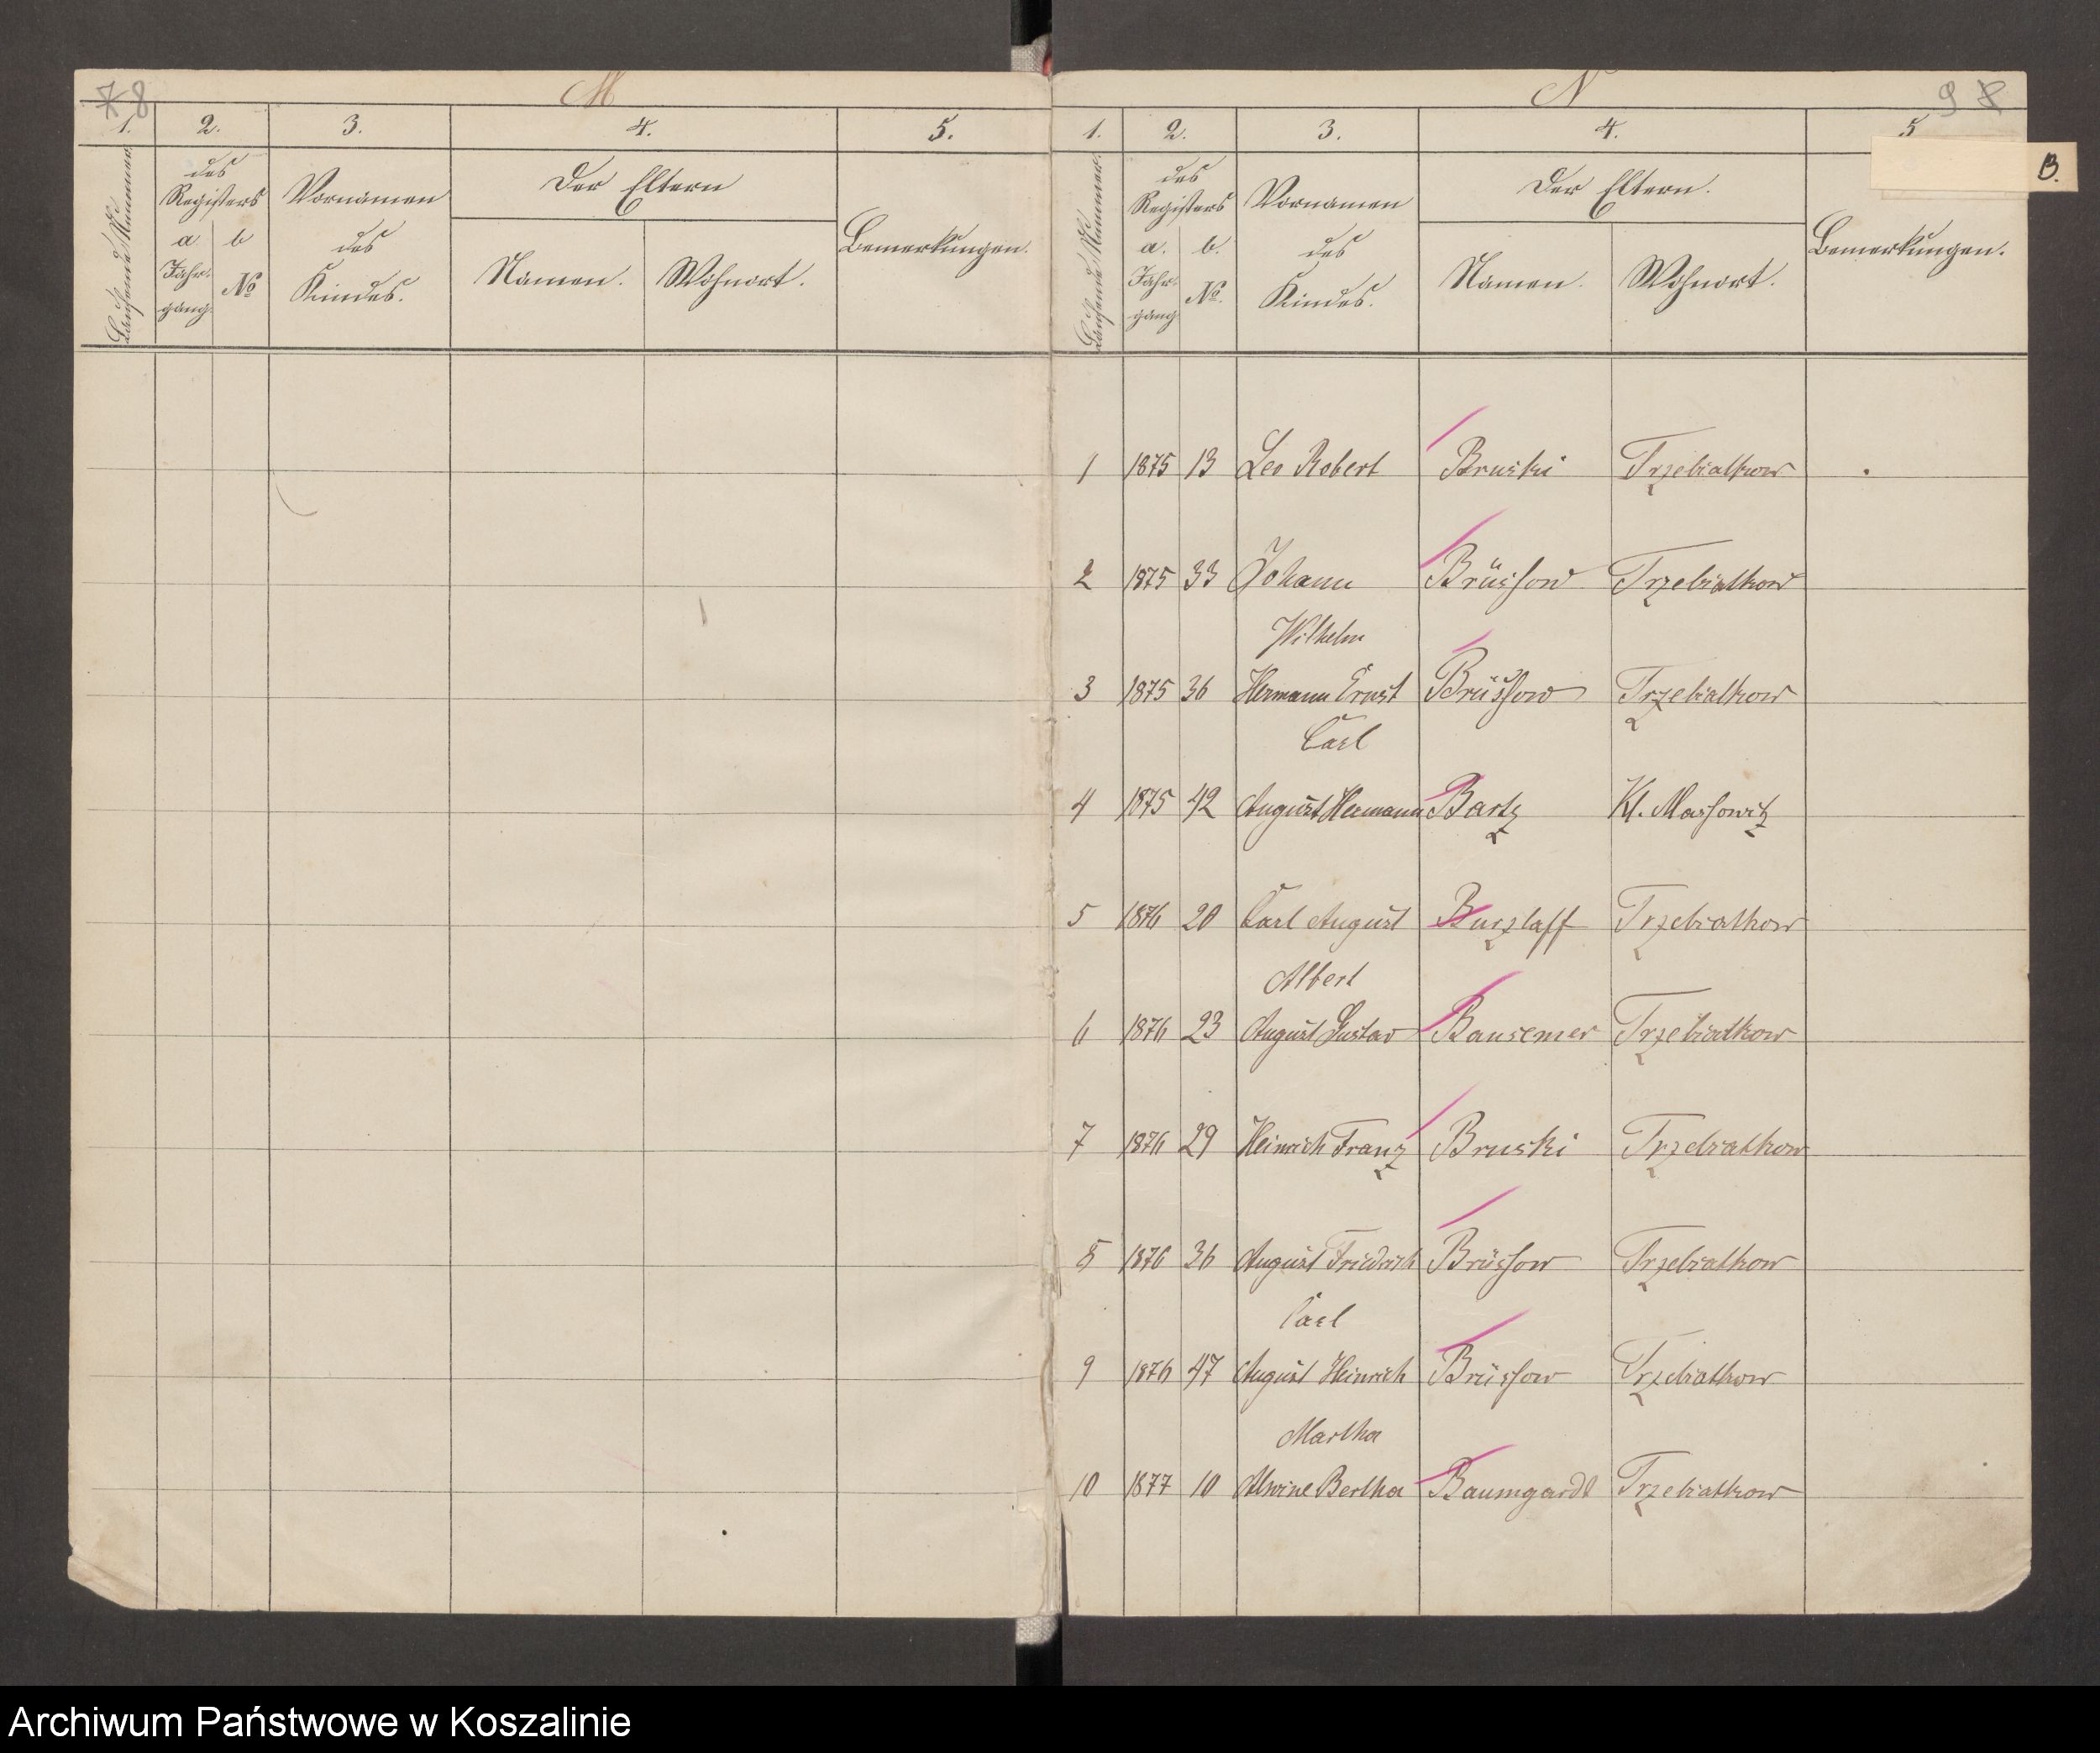 7 8
M
1. 2. 3. 4. 5.
Laufende Nummer.
des Registers
a. Jahrgang
b №
Vornamen des Kindes.
Der Eltern
Namen.
Wohnort.
Bemerkungen.
N
9 8
1. 2. 3. 4. 5
B.
Laufende Nummer.
des Registers
a. Jahrgang
b. №.
Vornamen des Kindes.
Der Eltern.
Namen.
Wohnort.
Bemerkungen.
1 1875 13 Leo Robert Bruski Trzebiatkow
2 1875 33 Johann Brüssow Trzebiatkow
Wilhelm
3 1875 36 Hermann Ernst Brüssow Trzebiatkow
Carl
4 1875 42 August Hermann Bartz Kl. Massowitz
5 1876 20 Carl August Burzlaff Trzebiatkow
Albert
6 1876 23 August Gustav Bansemer Trzebiatkow
7 1876 29 Heinrich Franz Bruski Trzebiatkow
8 1876 36 August Friedrich Brüssow Trzebiatkow
Carl
9 1876 47 August Heinrich Brüssow Trzebiatkow
Martha
10 1877 10 Alwine Bertha Baumgardt Trzebiatkow
Archiwum Państwowe w Koszalinie